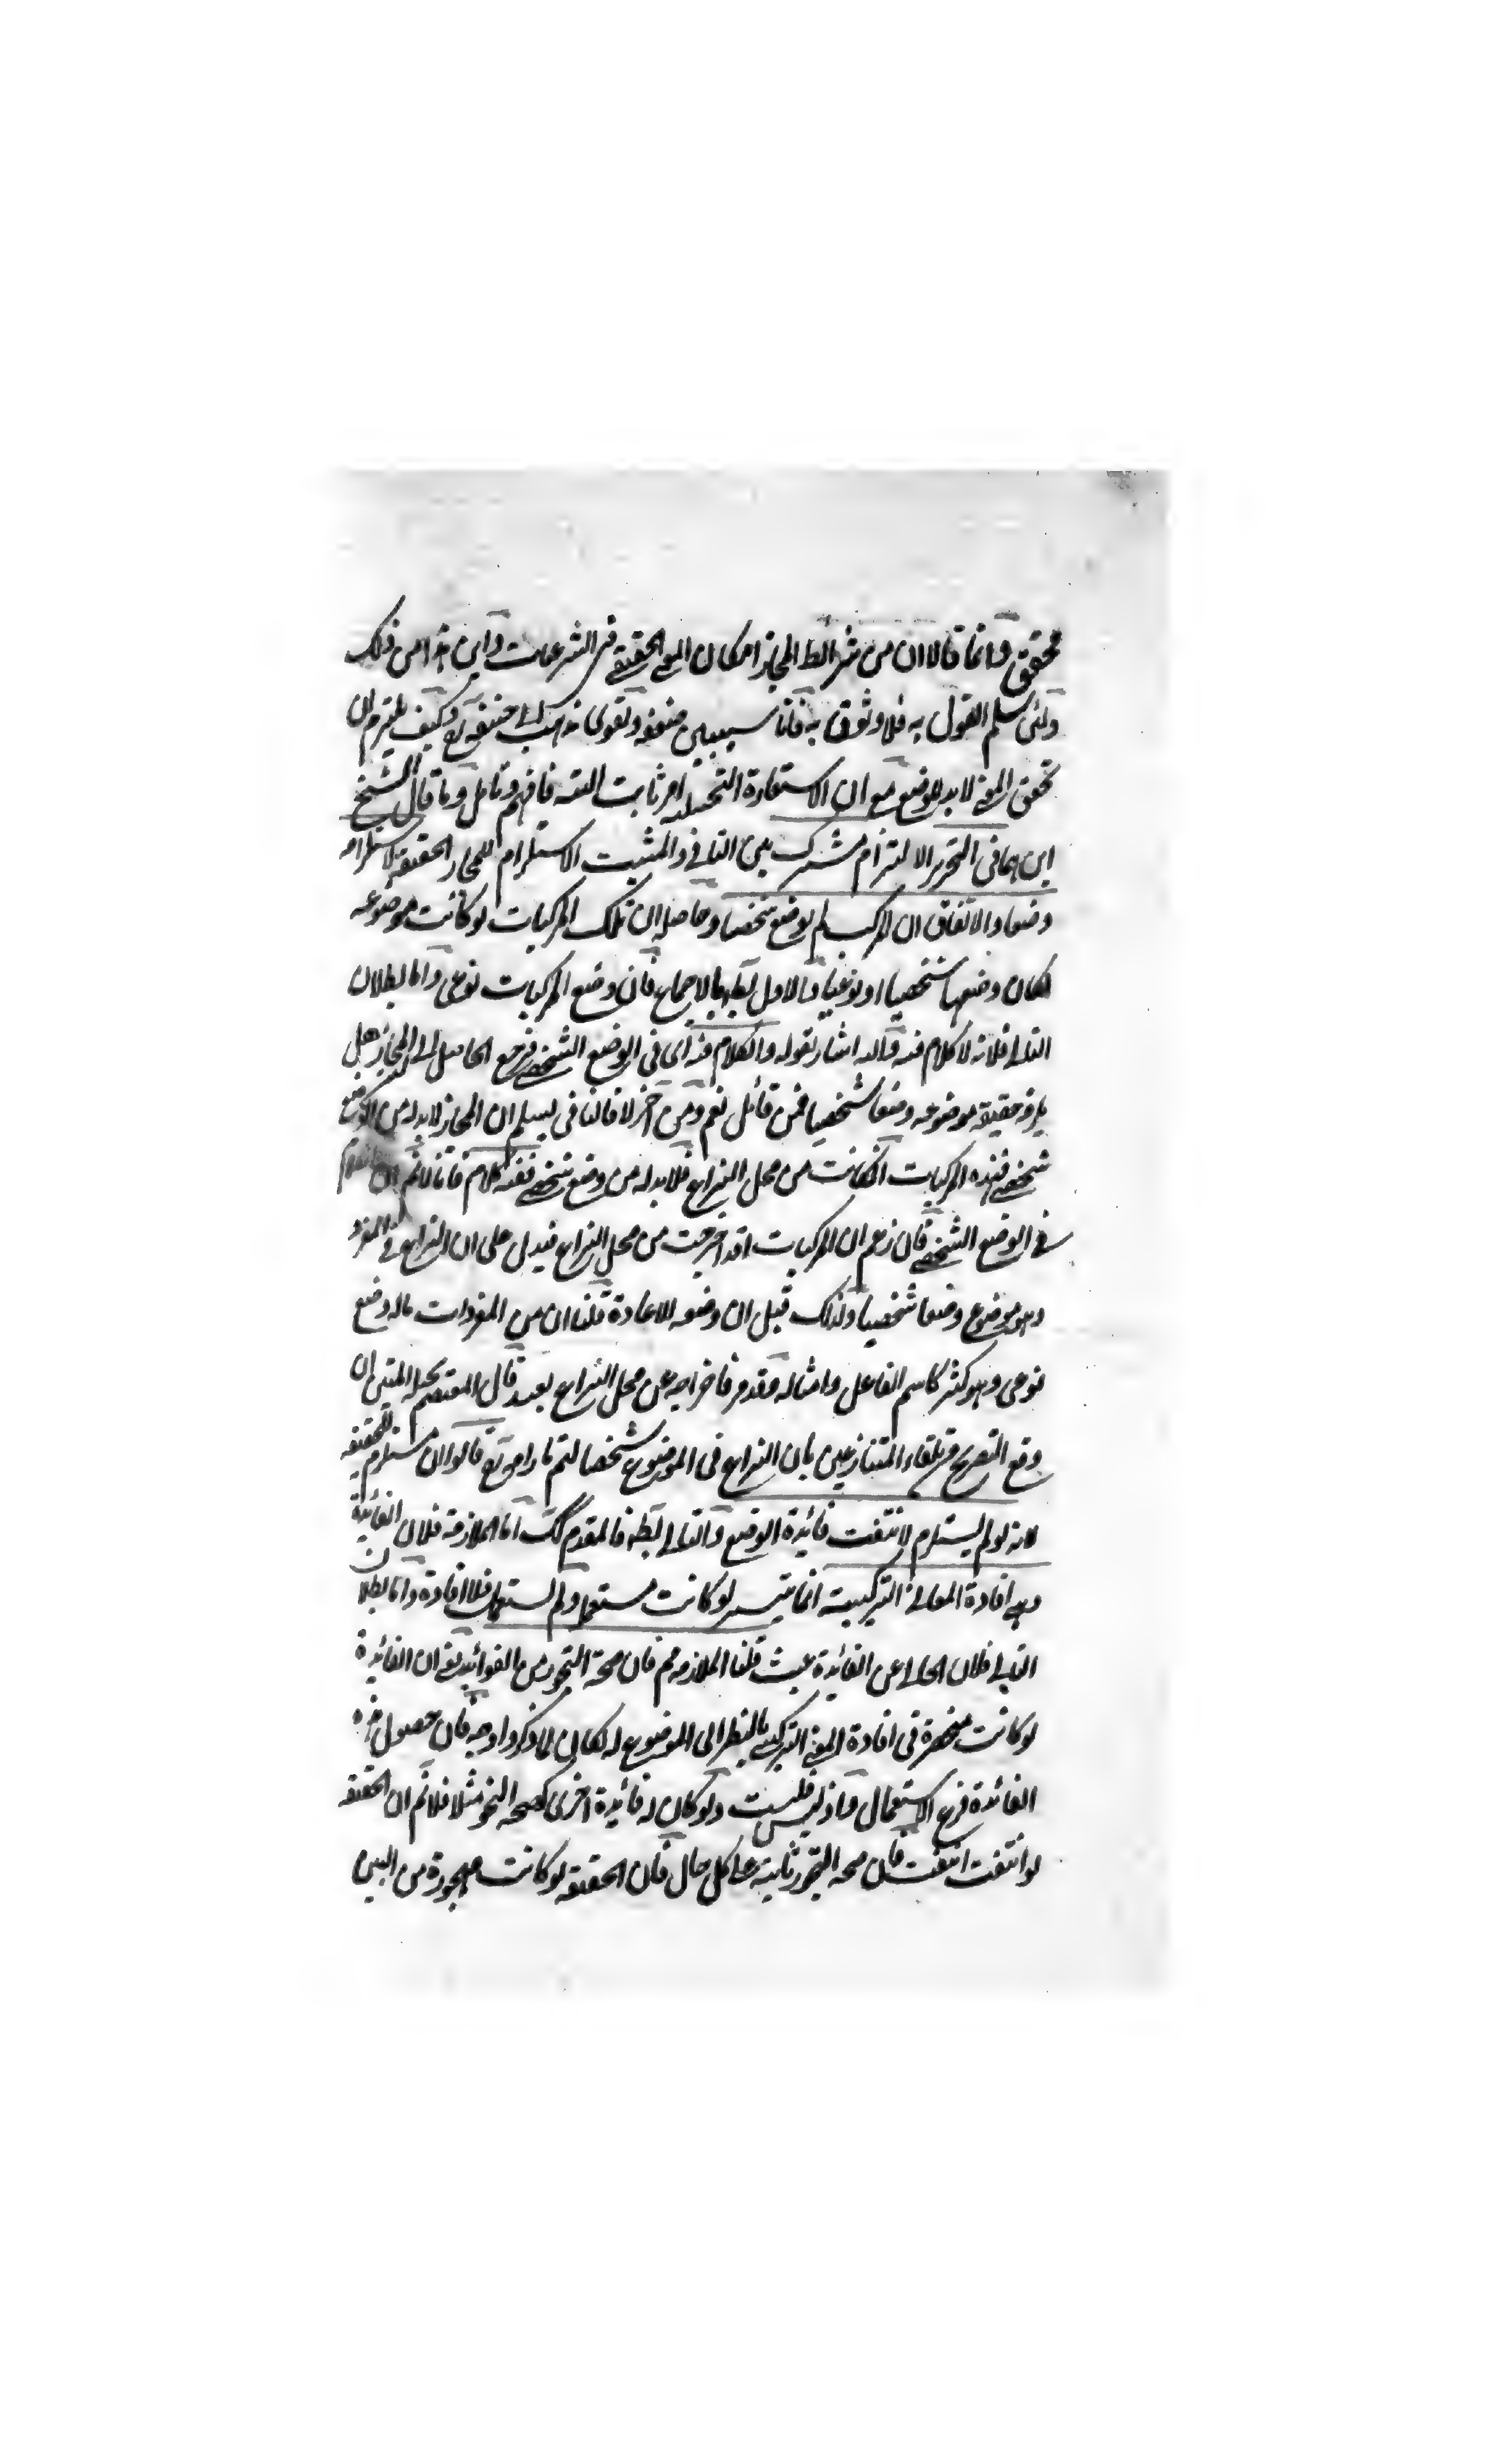 محقق وانما قالا ان من شرائط المجاز امكان المعنى الحقيقى فى الشرعيات واين هذا من ذلك
ولئن سلم القول به فلا وثوق به فانا سيبين ضعفه وتقوى مذهب ابى حنيفة رح وكيف يلتزم ان
تحقق المعنى لابد للوضع مع ان الاستعارة التخييلية امر ثابت البتة فافهم وتامل وما قال الشيخ
ابن همام فى التحرير الالتزام مشترك بين النافى والمثبت الاستلزام المجاز الحقيقة لاستلزامه
وضعا والاتفاق ان المركب لم يوضع شخصيا وحاصله ان تلك المركبات لو كانت موضوعه
لكان وضعها شخصيا او نوعيا والاول بط بالاجماع فان وضع المركبات نوعى واما بطلان
التالى فلانه لا كلام فيه واليه اشار بقوله والكلام فيه اى فى الوضع الشخصى فرجع الحاصل الى ان المجاز هل
يلزمه حقيقة موضوعه وضعا شخصيا فمن قائل نعم ومن آخر لا فالنافى يسلم ان المجاز لابد له من الوضع
شخصى فهذه المركبات ان كانت من محل النزاع فلابد له من وضع شخصى ففيه كلام فانا لانم ان الكلام
فى الوضع الشخصى فان زعم ان المركبات قد اخرجت من محل النزاع فيدل على ان النزاع فى المفرد
وهو موضوع وضعا شخصيا ولذلك قيل ان وضعه للاعادة قلنا ان من المفردات ماله وضع
نوعى وهو كثير كاسم الفاعل وامثاله فقد مر فاخراجه عن محل النزاع بعيد قال المعتصم بحبله المتين ان
وقع التصريح من تلقاء المتنازعين بان النزاع فى الموضوع شخصا لتم ما رامو رح قالوا ان مستلزم للحقيقة
لانه لو لم يستلزم لانتفت فائدة الوضع والتالى بط فالمقدم كك اما الملازمة فلان الفائدة
وهى افادة المعانى التركيبية انما يتيسر لو كانت مستعملة ولم يستعمل فلا افادة واما بطلان
التالى فلان الخالى عن الفائدة عبث قلنا الملازمه مم فان صحة التجوز من الفوائد يعنى ان الفائدة
لو كانت منحصرة فى افادة المعنى التركيبى بالنظر الى الموضوع له لكان لما ذكروا وجه فان حصول هذه
الفائدة فرع الاستعمال واذ ليس فليست ولو كان له فائدة اخرى كصحة التجوز مثلا فلانم ان الحقيقة
لو انتفت انتفت فان صحة التجوز ثابتة على كل حال فان الحقيقة لو كانت مهجورة من البين